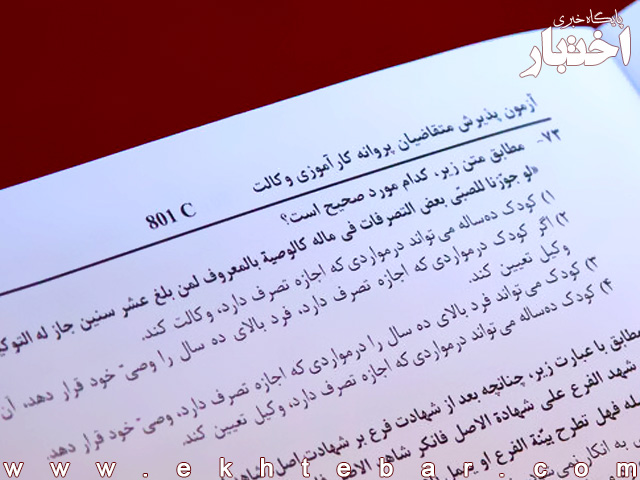 پایگاه خبری
اختبار
آزمون پذیرش متقاضیان پروانه کارآموزی وکالت
801 C
۷۳- مطابق متن زیر، کدام مورد صحیح است؟
«لو جوّزنا للصبیّ بعض التصرفات فی ماله کالوصیة بالمعروف لمن بلغ عشر سنین جاز له
۱) کودک ده‌ساله می‌تواند درمواردی که اجازه تصرف دارد، وکالت کند.
۲) اگر کودک درمواردی که اجازه تصرف دارد، فرد بالای ده سال را وصیّ خود قرار دهد، آن
وکیل تعیین کند.
۳) کودک می‌تواند فرد بالای ده سال را درمواردی که اجازه تصرف دارد، وصیّ خود قرار دهد.
۴) کودک ده‌ساله می‌تواند درمواردی که اجازه تصرف دارد، وکیل تعیین کند.
مطابق با عبارت زیر، چنانچه بعد از شهادت فرع بر شهادت اصل
شهد الفرع علی شهادة الاصل فانکر شاهد الاصل
فهل تطرح بیّنة الفرع او یعمل
به انکار
www.ekhtebar.com